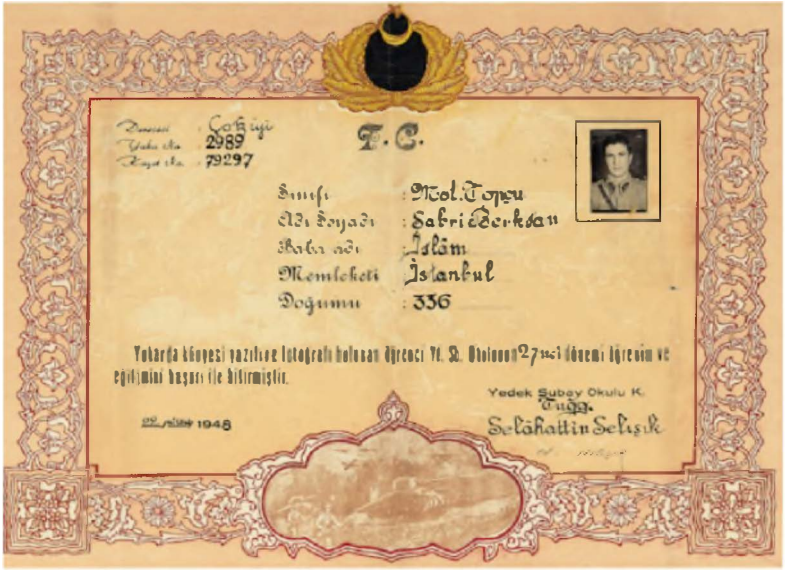 Derecesi : Çok iyi
Yaka No. : 2989
Kayıt No. : 79297
T.C.
Sınıfı : Mot. Topçu
Adı Soyadı : Sabri Berksan
Baba adı : İslâm
Memleketi : İstanbul
Doğumu : 336
Yukarda künyesi yazılı ve fotoğrafı bulunan öğrenci Yd. Sb. Okulunun 27 nci dönemi öğrenim ve
eğitimini başarı ile bitirmiştir.
Yedek Subay Okulu K.
Tuğg.
1948
Selâhattin Selışık